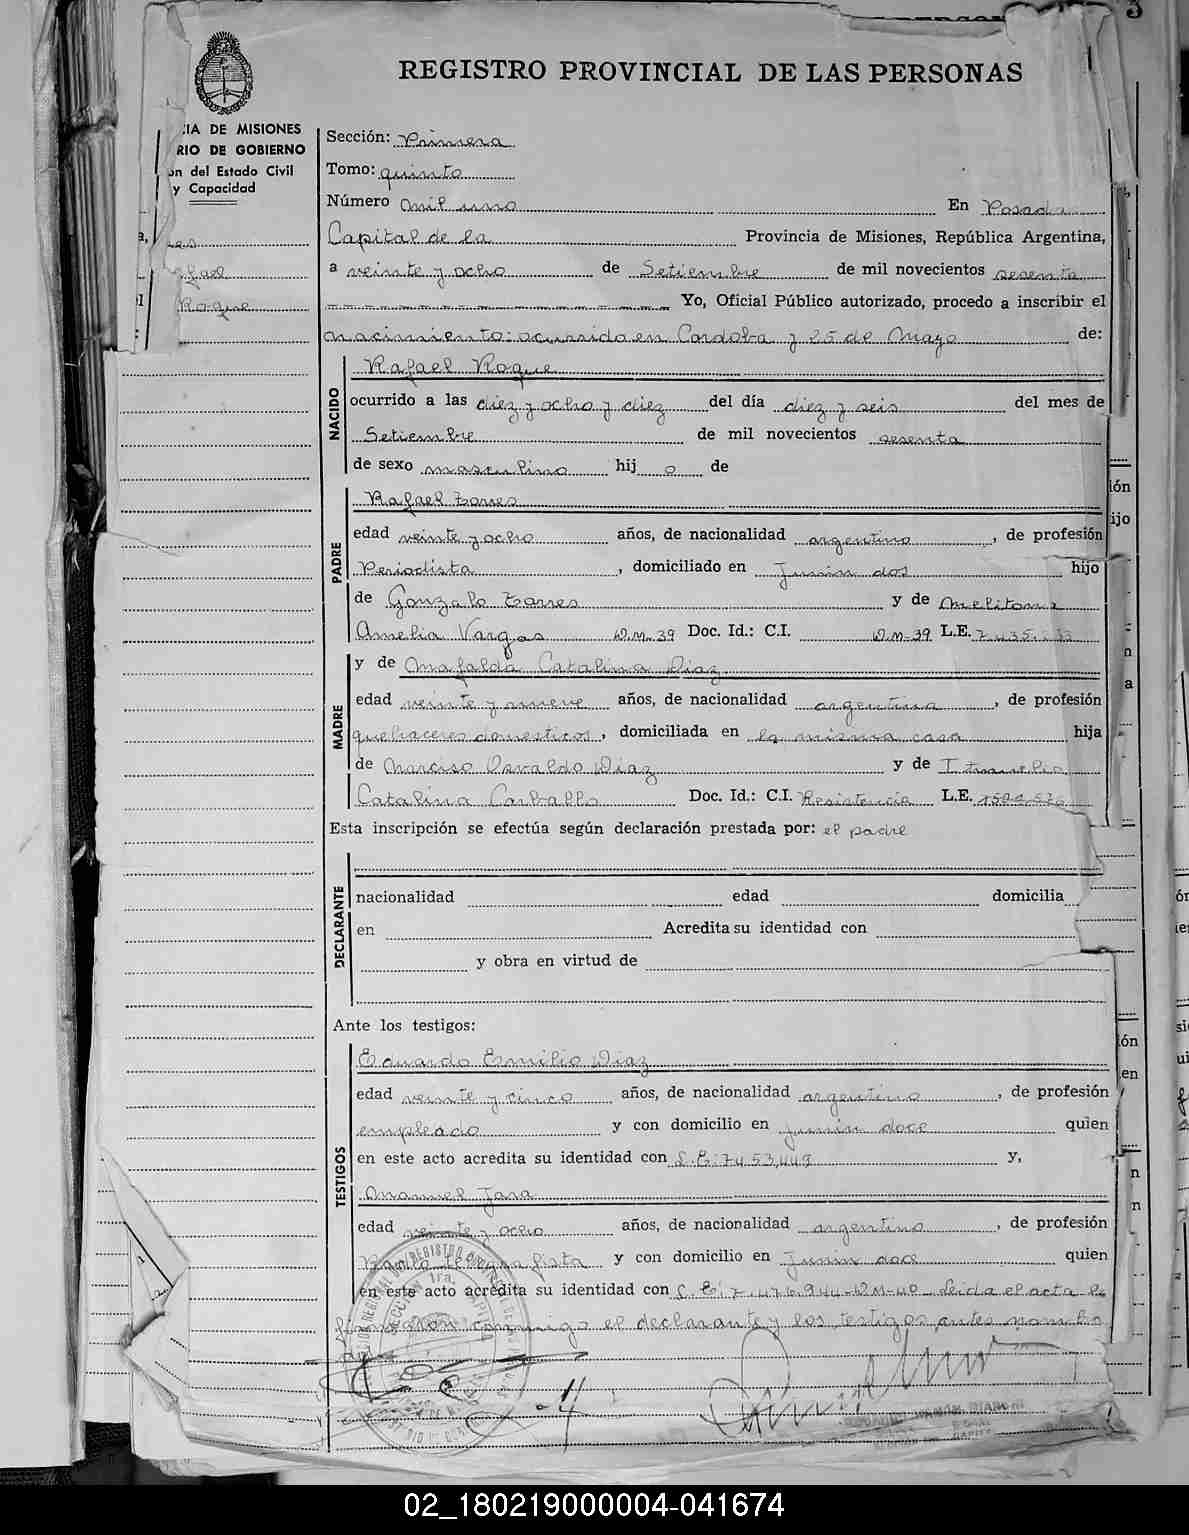 REGISTRO PROVINCIAL DE LAS PERSONAS
IA DE MISIONES
RIO DE GOBIERNO
ón del Estado Civil
y Capacidad
Roque
Sección: Primera
Tomo: quinto
Número mil uno En Posadas
Capital de la Provincia de Misiones, República Argentina,
a veinte y ocho de Setiembre de mil novecientos sesenta
Yo, Oficial Público autorizado, procedo a inscribir el
nacimiento: ocurrido en Cordoba y 25 de Mayo de:
NACIDO
Rafael Roque
ocurrido a las diez y ocho y diez del día diez y seis del mes de
Setiembre de mil novecientos sesenta
de sexo masculino hij o de
PADRE
Rafael Torres
edad veinte y ocho años, de nacionalidad argentino, de profesión
Periodista, domiciliado en Junin dos hijo
de Gonzalo Torres y de Melitona
Amelia Vargas D.M. 39 Doc. Id.: C.I. D.M-39 L.E.
MADRE
y de Mafalda Catalina Diaz
edad veinte y nueve años, de nacionalidad argentina, de profesión
quehaceres domesticos, domiciliada en la misma casa hija
de Narciso Osvaldo Diaz y de
Catalina Carballo Doc. Id.: C.I. Resistencia L.E.
Esta inscripción se efectúa según declaración prestada por: el padre
DECLARANTE
nacionalidad edad domicilia
en Acredita su identidad con
y obra en virtud de
Ante los testigos:
TESTIGOS
Eduardo Emilio Diaz
edad veinte y cinco años, de nacionalidad argentino, de profesión
empleado y con domicilio en Junin doce quien
en este acto acredita su identidad con L.E: 7453449 y,
Manuel Jara
edad veinte y ocho años, de nacionalidad argentino, de profesión
Radio telegrafista y con domicilio en Junin doce quien
en este acto acredita su identidad con L.E: 7.476.944-D.M-40 leida el acta la
firmaron conmigo el declarante y los testigos antes nombra
02_180219000004-041674